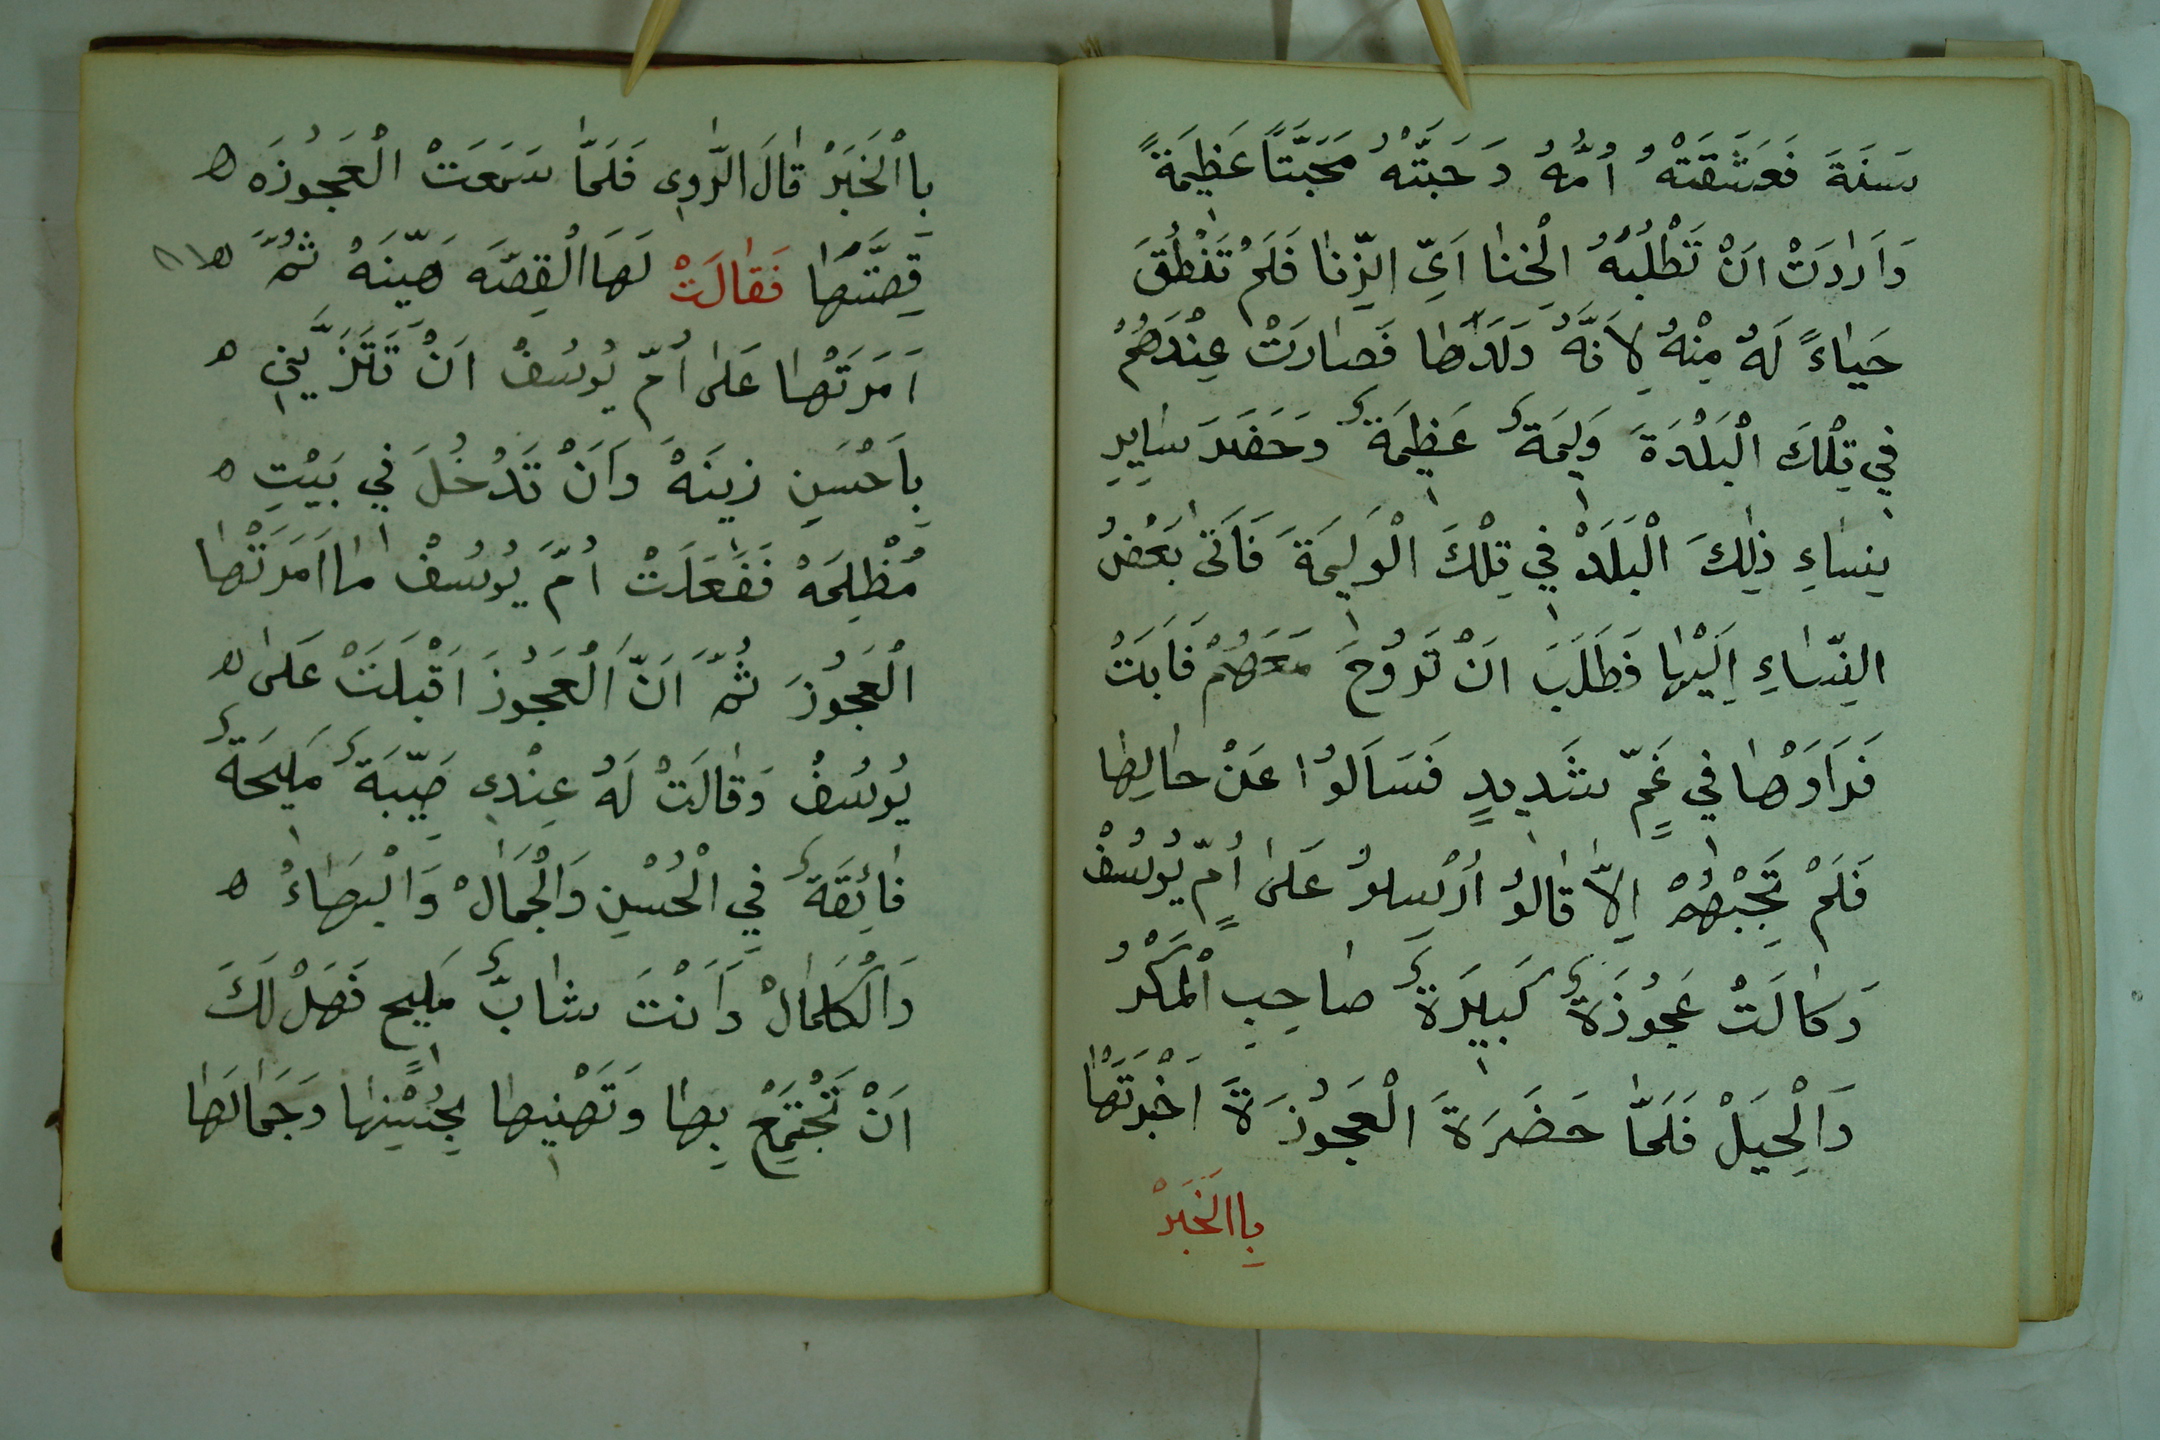 سَنَةَ فَعَشَقَتْهُ اُمُّهُ وَحَبَتَّهُ مَحَبَّتًا عَظِيمَةً
وَاَرٰدَتْ اَنْ تَطْلُبُهُ الْخِنٰا اَيِّ الزِّنٰا فَلَمْ تَنْطُقَ
حَيٰاءً لَهُ مِنْهُ لِاَنَّهُ وَلَدَهٰا فَصٰارَتْ عِنْدَهُمْ
فِي تِلْكَ الْبَلْدَةَ وَلِيمَةٌ عَظِيمَةٌ وَحَضَرَ سٰايِرِ
نِسٰاءِ ذٰلِكَ الْبَلَدْ فِي تِلْكَ الْوَلِيمَةَ فَاَتٰى بَعْضُ
النِّسٰاءِ اِلَيْهٰا فَطَلَبَ اَنْ تَرُوْحَ مَعَهُمْ فَابَتْ
فَرَاَوْهٰا فِي غَمٍّ شَدِيدٍ فَسَاَلُوْا عَنْ حٰالِهٰا
فَلَمْ تَجِبْهُمْ اِلاّٰ قٰالُوْ اُرْسِلُوْ عَلٰى اُمِّ يُوسُفْ
وَكٰالَتْ عَجُوْزَةٌ كَبِيرَةٌ صٰاحِبِ الْمَكْرُ
وَالْحِيَلْ فَلَمّٰا حَضَرَةَ الْعَجُوْزَةَ اَخْبَرَتْهٰا
بِاالْخَبَرْ
بِاالْخَبَرْ قٰالَ الرّٰوِي فَلَمّٰا سَمَعَتْ الْعَجُوْزَه
قِصَّتَهٰا فَقٰالَتْ لَهَا الْقِصَّه هَيِّنَهْ ثُمَّ
اَمَرَتْهٰا عَلٰى اُمِّ يُوسُفْ اَنْ تَتَزَيَّنِي
بِاَحْسَنِ زِينَهْ وَاَنْ تَدْخُلَ فِي بَيْتِ
مُظْلِمَهْ فَفَعَلَتْ اُمَّ يُوسُفْ مٰا اَمَرَتْهٰا
الْعَجُوْزَ ثُمَّ اَنَّ الْعَجُوْزَ اَقْبَلَتْ عَلٰى
يُوسُفْ وَقٰالَتْ لَهُ عِنْدِي صَبِيَّةٌ مَلِيحَةٌ
فٰائِقَةٌ فِي الْحُسْنِ وَالْجَمٰالْ وَالْبَهٰاءْ
وَالْكَمٰالْ وَاَنْتَ شٰابٌّ مَلِيحٍ فَهَلْ لَكَ
اَنْ تَجْتَمِعْ بِهٰا وَتَهْنِيهٰا بِحُسْنِهٰا وَجَمٰالَهٰا